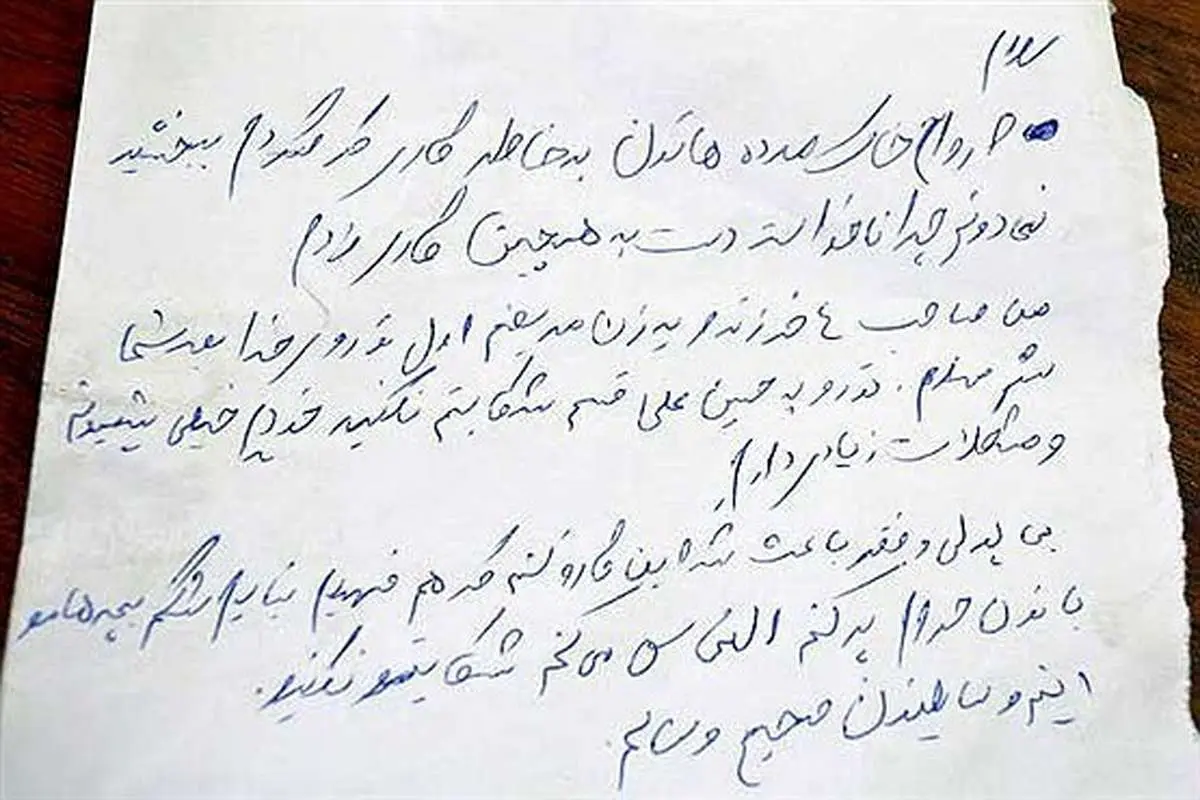 سلام
ارواح خاک مرده هاتون به خاطر کاری که کردم ببخشید
نمی دونم چرا ناخواسته دست به همچین کاری زدم
من صاحب ۴ فرزند و یه زن مریضم اول تو روی خدا بعد شما
شرم دارم. تورو به حسین علی قسم شکایتم نکنید خودم خیلی پشیمونم
و مشکلات زیادی دارم
بی پولی و فقر باعث شد این کارو کنم که هم فهمیدم نباید شکم بچه هامو
با نون حرام پر کنم التماس می کنم شکایتمو نکنید.
اینم وسایلتون صحیح و سالم.